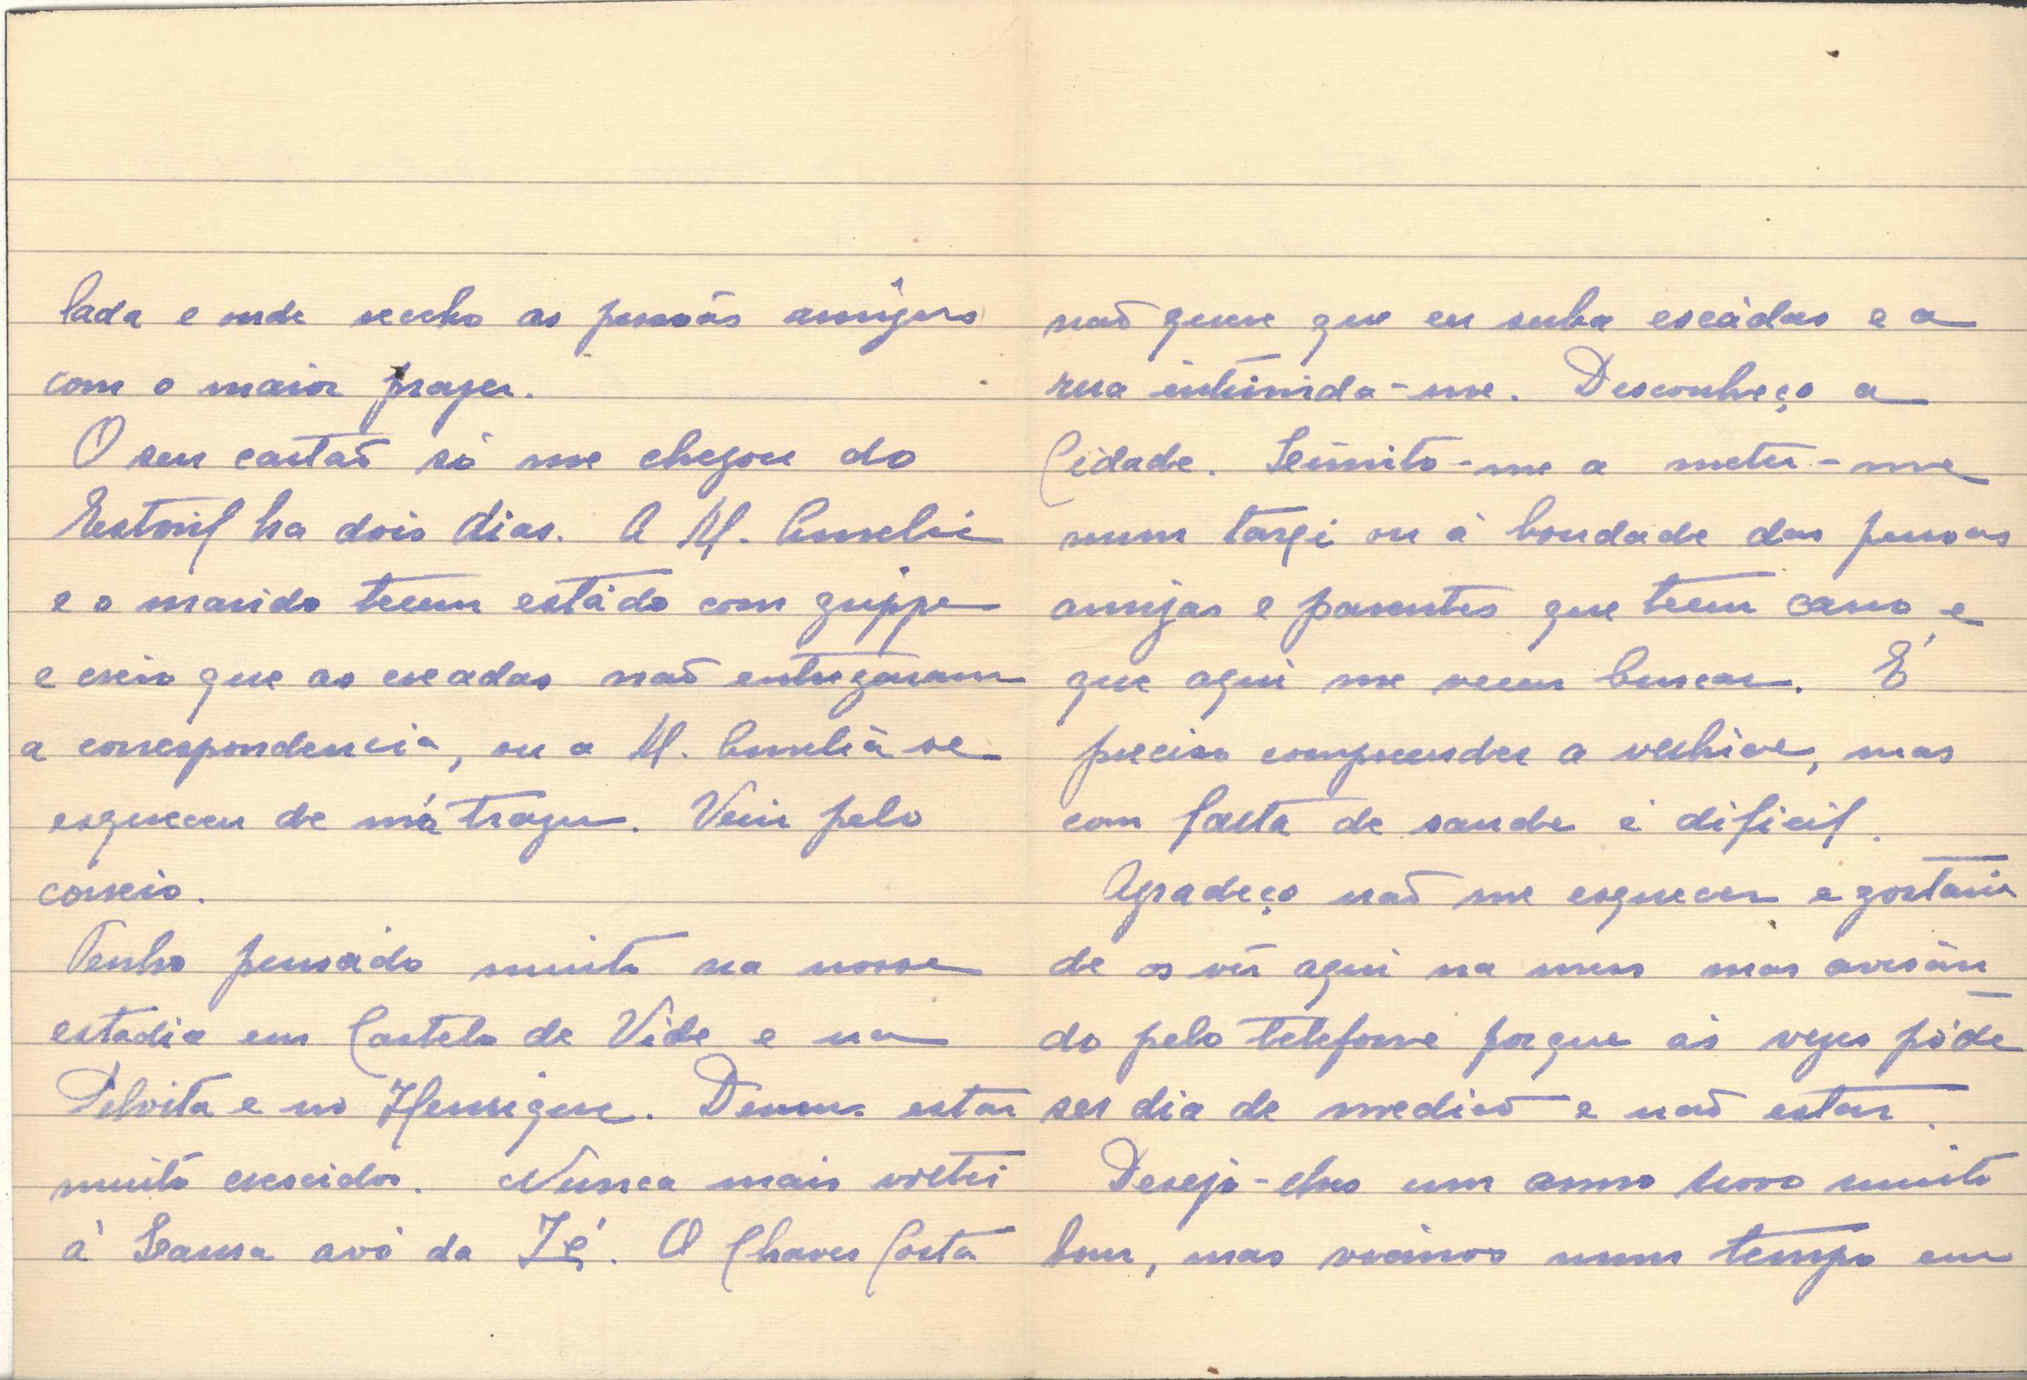 lada e onde recebo as pessoas amigas
com o maior prazer.
O seu cartão só me chegou do
Estoril ha dois dias. A M. Amelia
e o marido teem estado com grippe
e creio que as creadas não entregaram
a correspondencia, ou a M. Amelia se
esqueceu de m'a trazer. Veiu pelo
correio.
Tenho pensado muito na nossa
estadia em Castelo de Vide e na
e no Henrique. Devem estar
muito crescidos. Nunca mais voltei
à Laura avó da Zé. O Chaves Costa
não quere que eu suba escadas e a
rua intimida-me. Desconheço a
Cidade. Limito-me a meter-me
num taxi ou à bondade das pessoas
amigas e parentes que teem carro e
que aqui me veem buscar. É
preciso compreender a velhice, mas
com falta de saude é dificil.
Agradeço não me esquecer e gostaria
de os vêr aqui na mas avisan
do pelo telefone porque às vezes póde
ser dia de medico e não estar.
Desejo-lhes um anno novo muito
bom, mas vivemos num tempo em